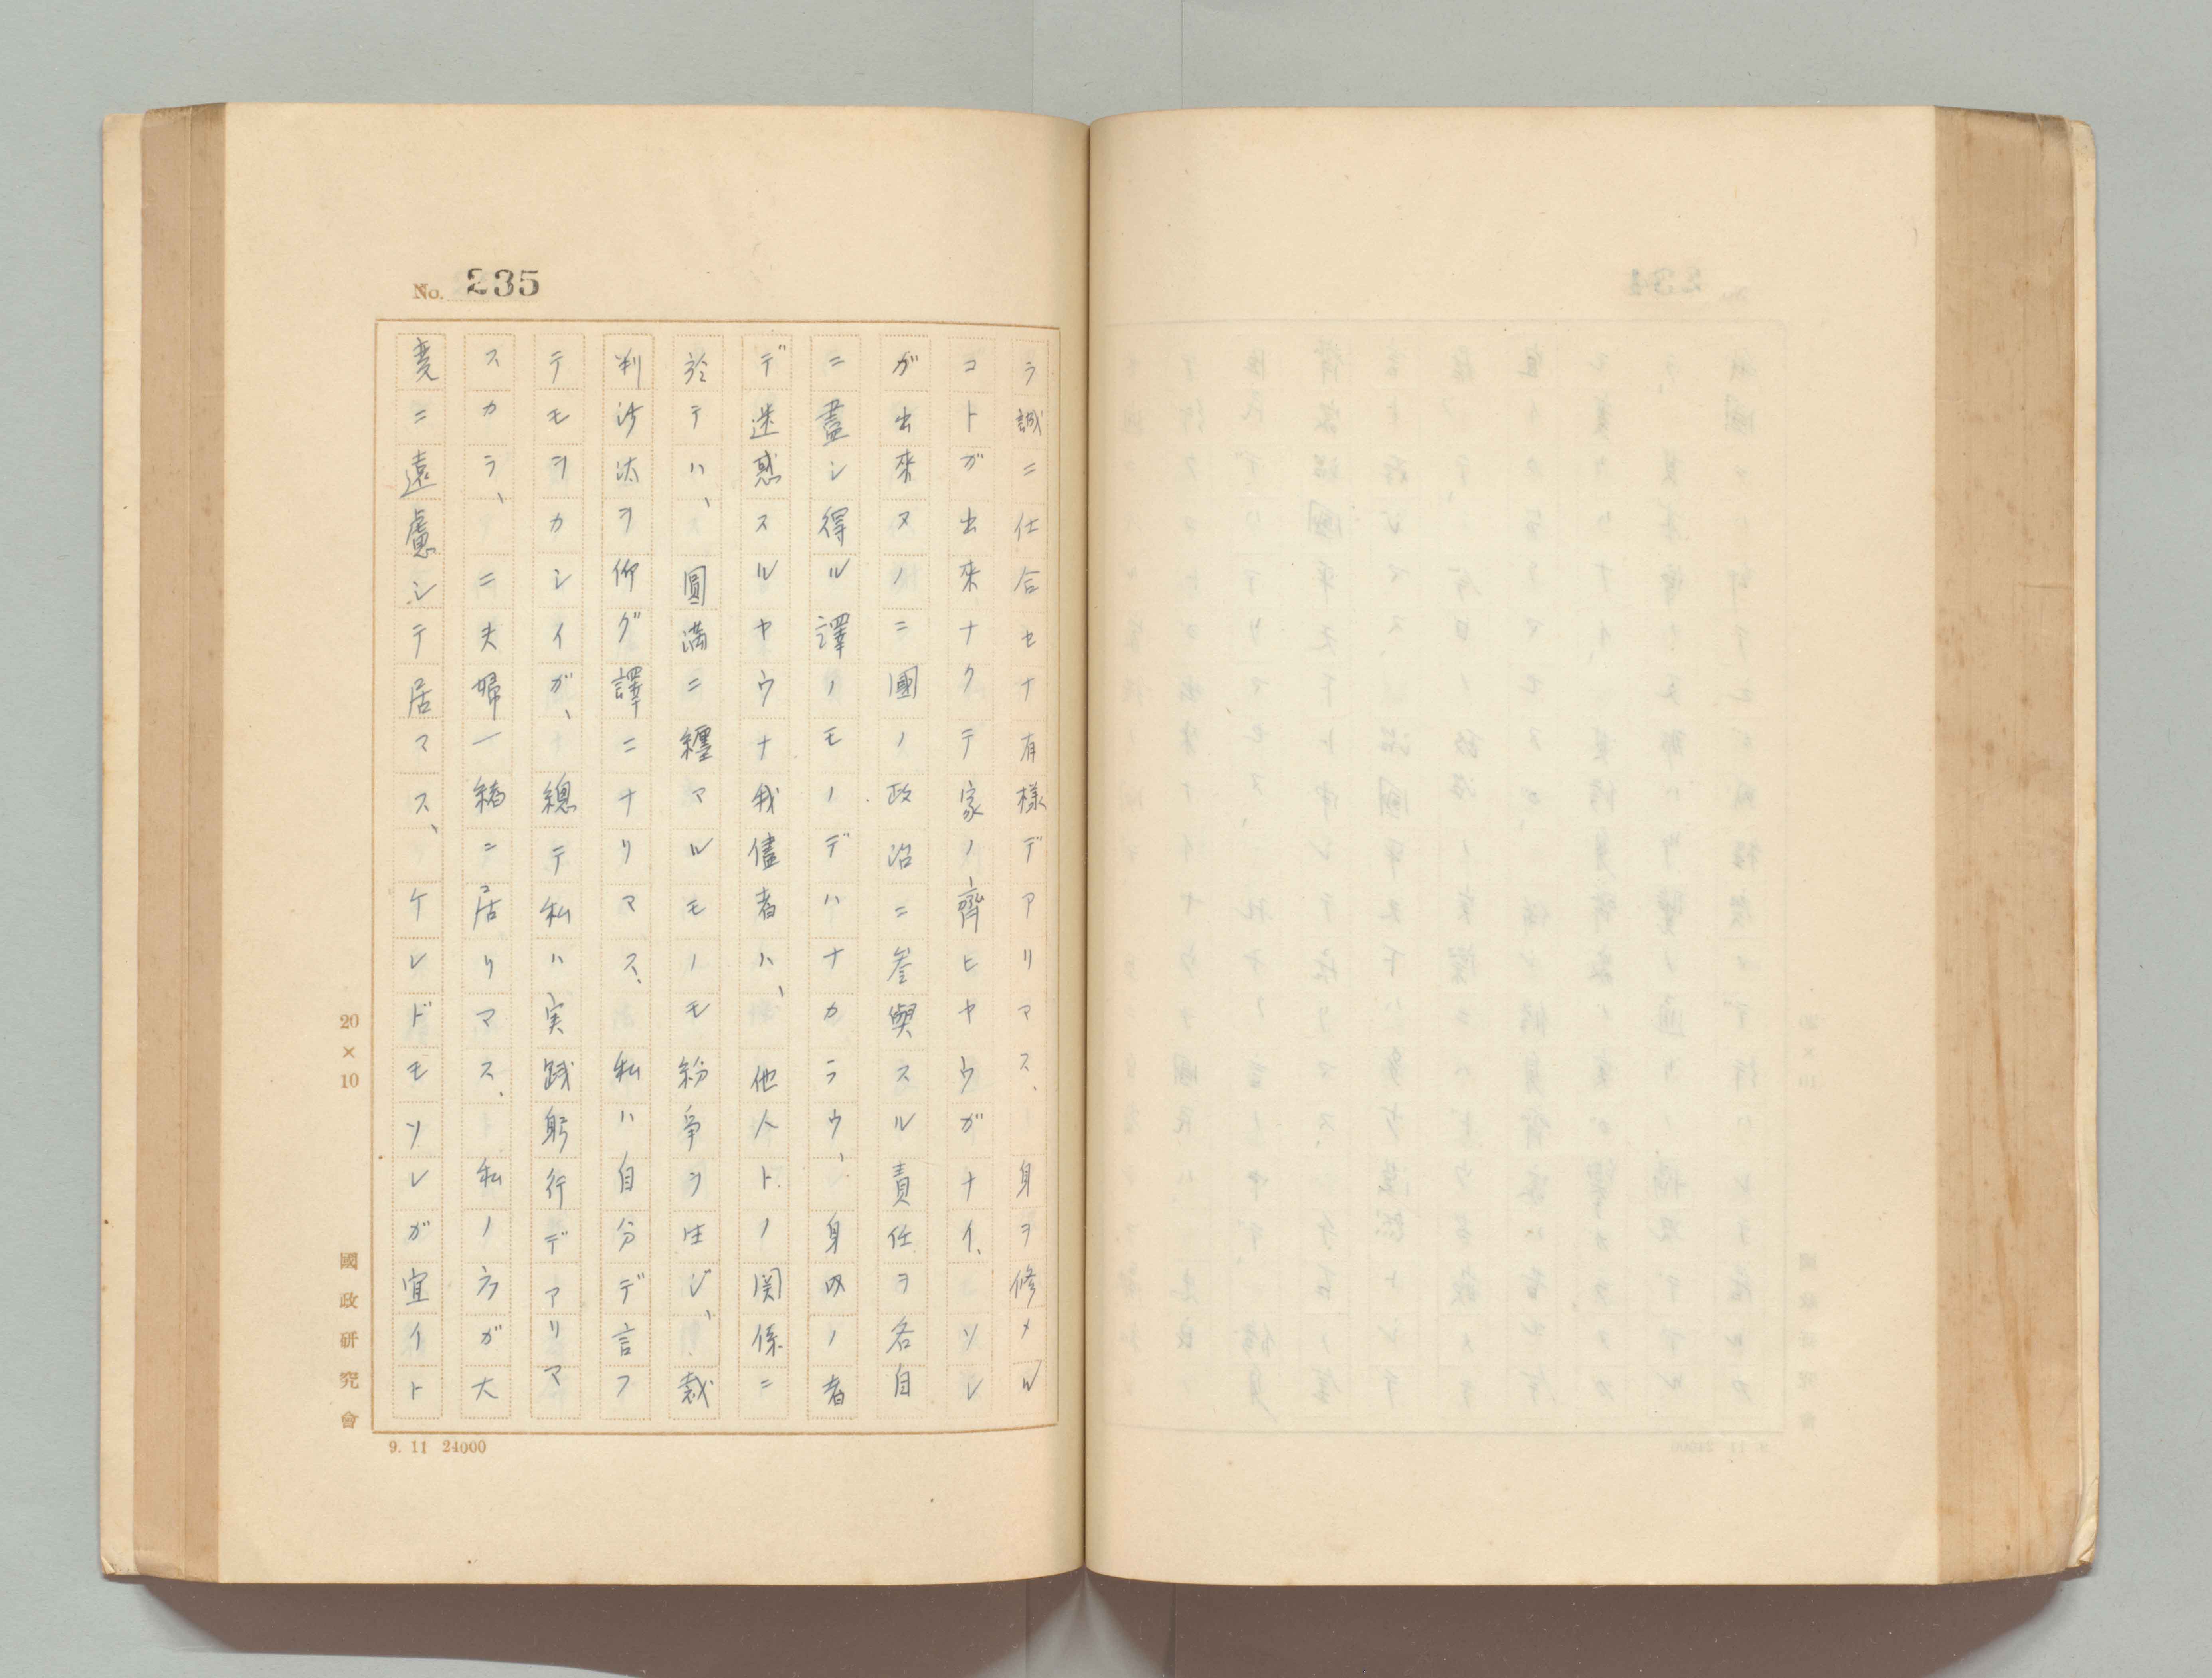 No. 235
ラ誠ニ仕合セナ有様デアリマス、身ヲ修メル
コトガ出來ナクテ家ノ齊ヒヤウガナイ、ソレ
ガ出來ヌノニ國ノ政治ニ參與スル責任ヲ各自
ニ盡シ得ル譯ノモノデハナカラウ、身勝ノ者
デ迷惑スルヤウナ我儘者ハ、他人トノ関係ニ
於テハ、圓満ニ纒マルモノモ紛爭ヲ生ジ、裁
判沙汰ヲ仰グ譯ニナリマス、私ハ自分デ言フ
テモヲカシイガ、總テ私ハ実践躬行デアリマ
スカラ、ニ夫婦一緒ニ居リマス、私ノ方ガ大
変ニ遠慮シテ居マス、ケレドモソレガ宜イト
20×10
國政研究會
9. 11 24000